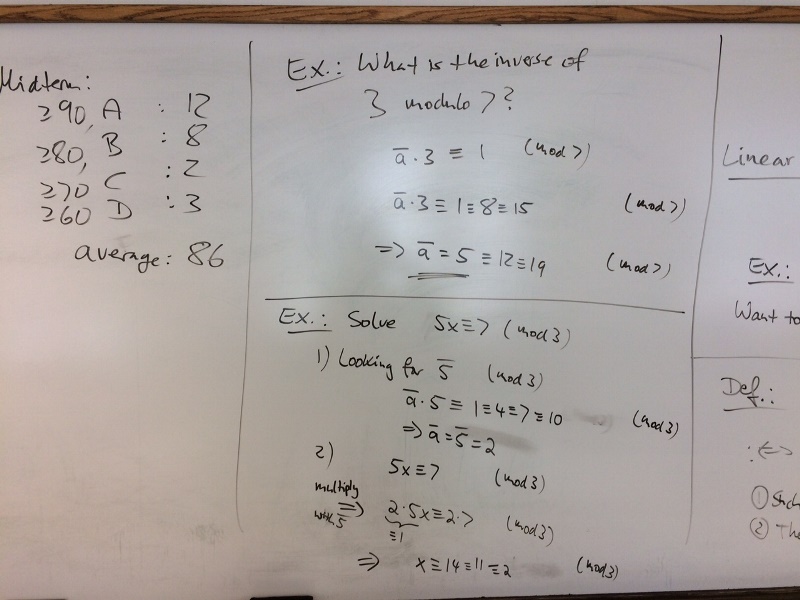 Midterm:
≥90, A : 12
≥80, B : 8
≥70 C : 2
≥60 D : 3
average: 86
Ex.: What is the inverse of
3 modulo 7?
a̅·3 ≡ 1 (mod 7)
a̅·3 ≡ 1 ≡ 8 ≡ 15 (mod 7)
=> a̅ = 5 ≡ 12 ≡ 19 (mod 7)
Ex.: Solve 5x ≡ 7 (mod 3)
1) Looking for 5̅ (mod 3)
a̅·5 ≡ 1 ≡ 4 ≡ 7 ≡ 10 (mod 3)
=> a̅ = 5̅ = 2
2) 5x ≡ 7 (mod 3)
multiply
with 5̅ => 2·5x ≡ 2·7 (mod 3)
≡1
=> x ≡ 14 ≡ 11 ≡ 2 (mod 3)
Linear
Ex.:
Want to
Def.:
:<=>
①
② The